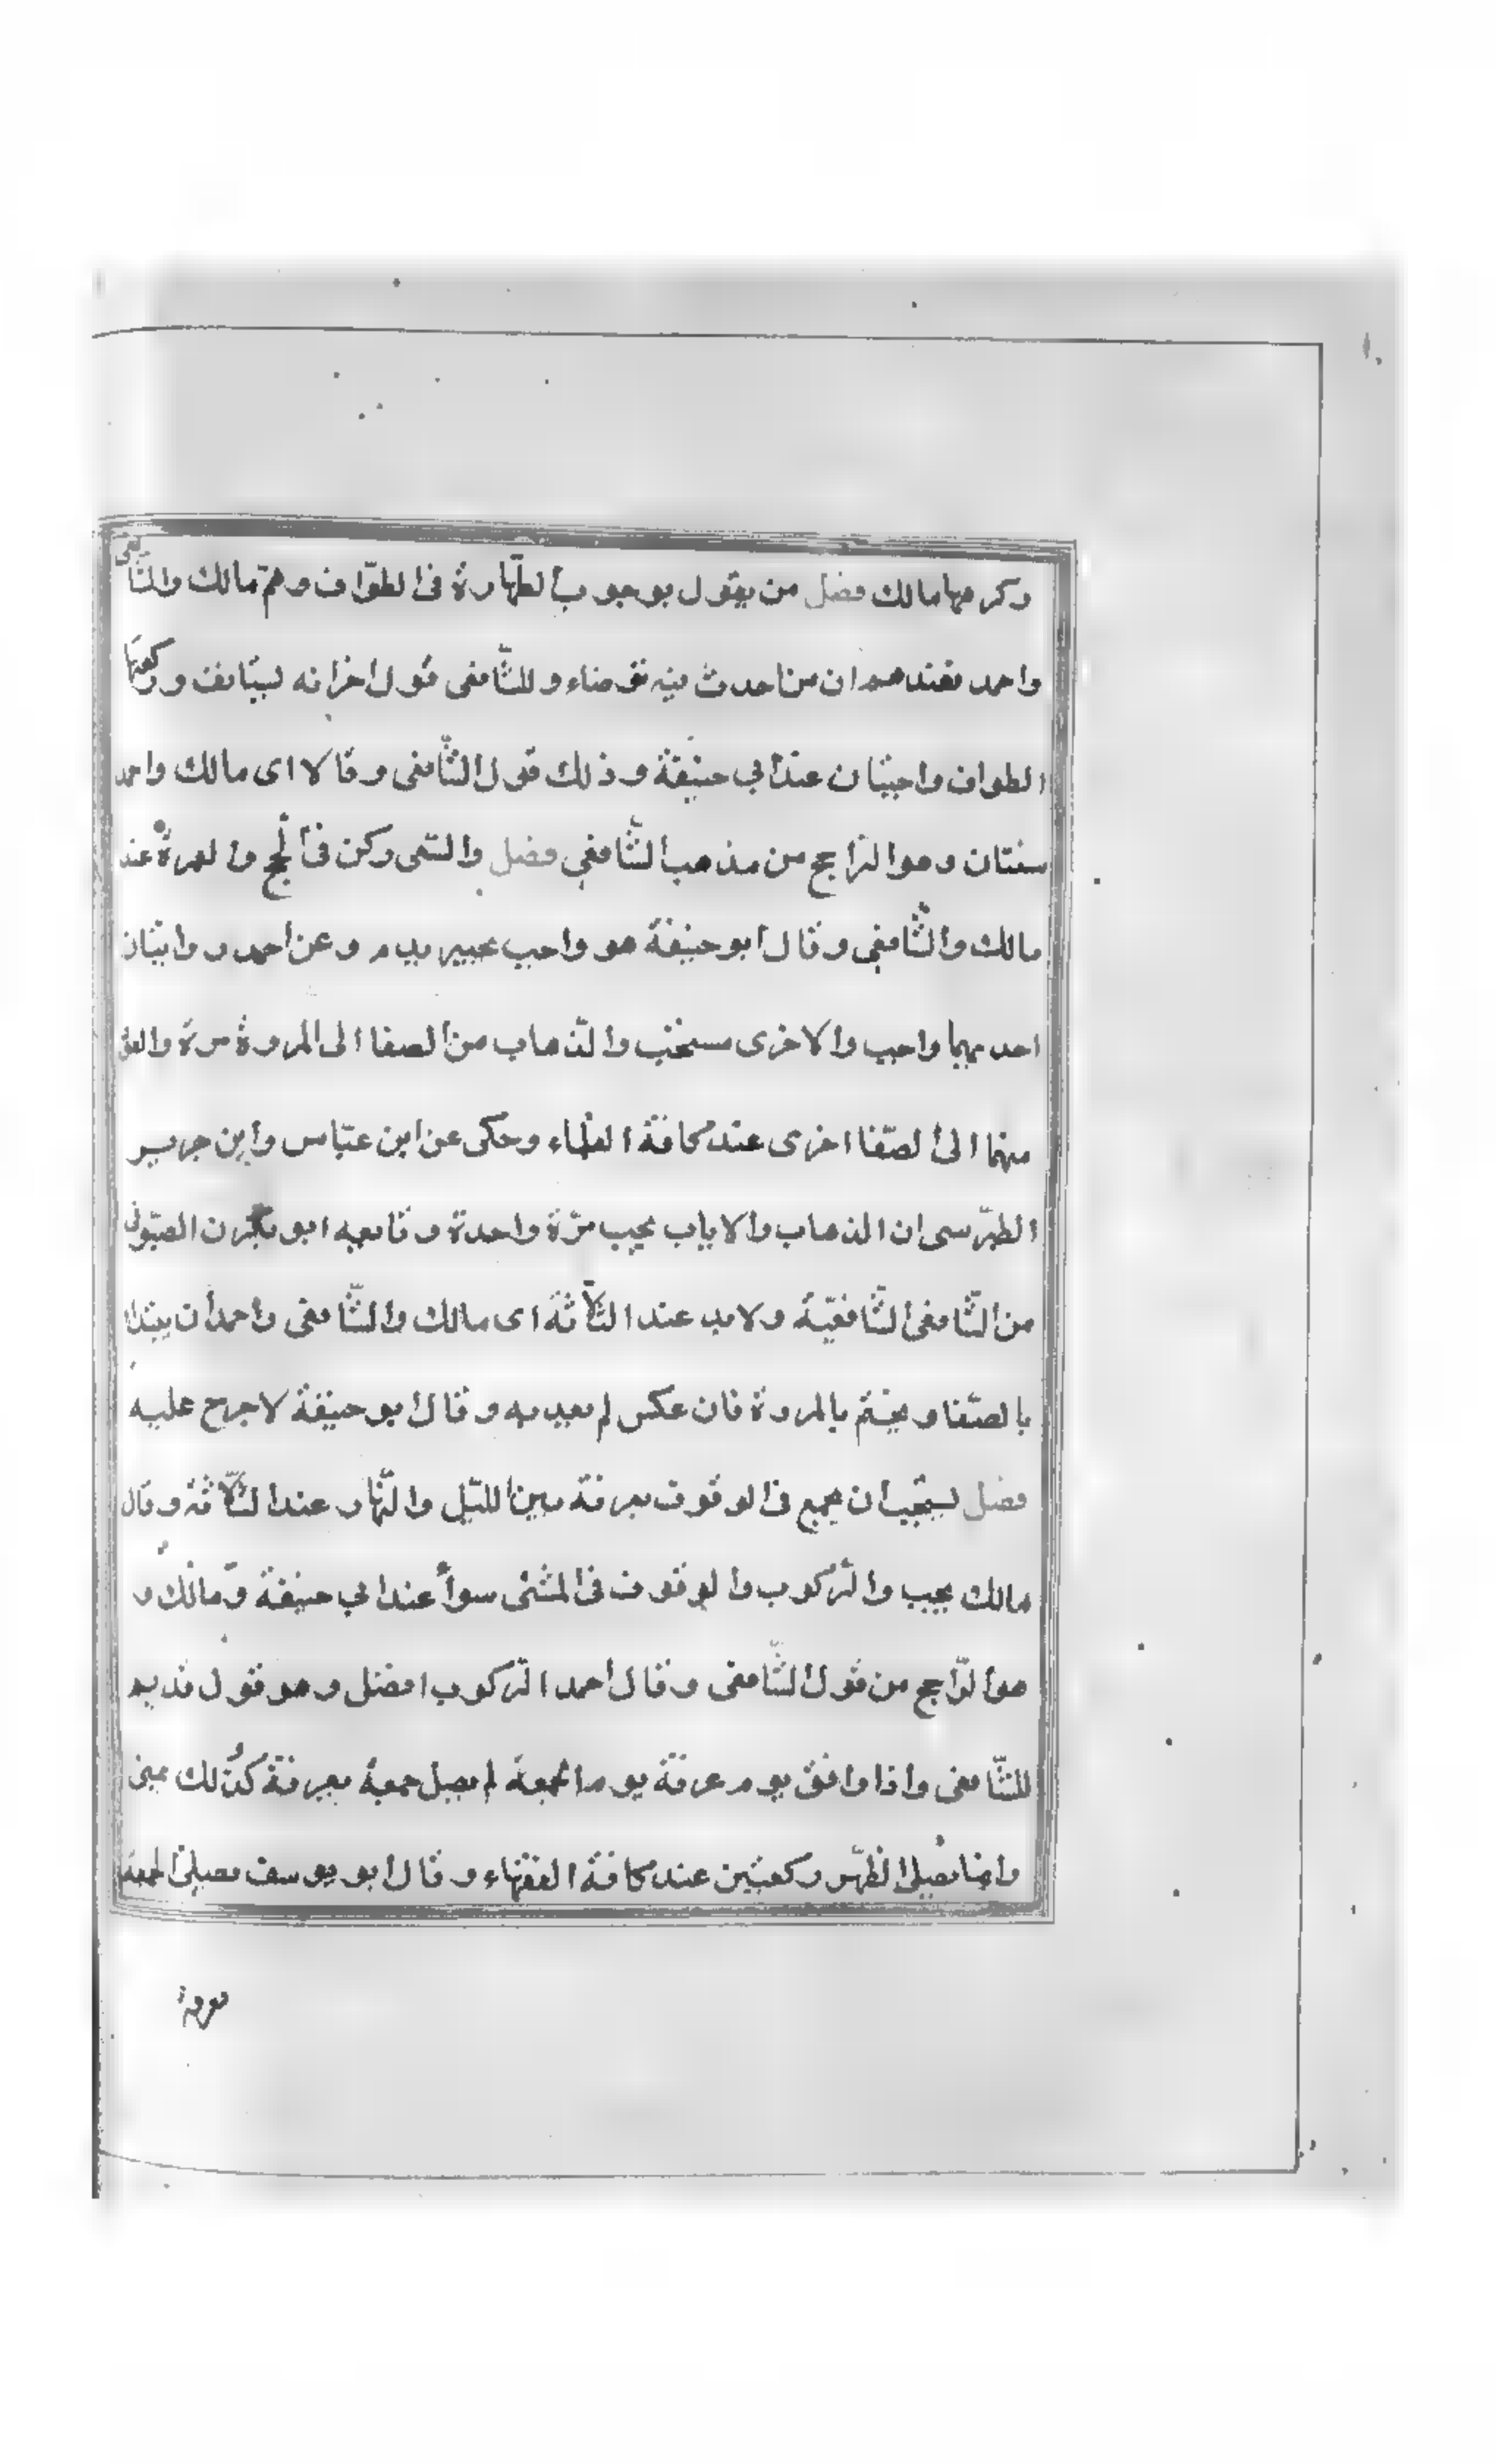 وكرهها مالك فصل من يقول بوجوب الطّهارة فى الطوّاف وهم مالك والشّافعى
واحمد فعندهم ان من احدث فيه توضاء وللشّافعى قول اخر انه يستانف وركعتا
الطواف واجبتان عند ابي حنيفة وذلك قول الشّافعى وقالا اى مالك واحمد
سنتان وهو الرّاجح من مذهب الشّافعي فصل والسّعى ركن في الحج والعمرة عند
مالك والشّافعي وقال ابو حنيفة هو واجب يجبر بدم وعن احمد روايتان
احديهما واجب والاخرى مستحب والذّهاب من الصفا الى المروة مرة والعود
منها الى الصّفا اخرى عند كافة العلماء وحكى عن ابن عبّاس وابن جرير
الطبّرسى ان الذهاب والاياب يجب مرّة واحدة وتابعه ابو بكر ن الصيّرفى
من الشّافعى الشّافعيّة ولا بد عند الثّلاثة اى مالك والشّافعى واحمد ان يبتدا
بالصّفا ويختم بالمروة فان عكس لم يعيد به وقال ابو حنيفة لا جرح عليه
فصل يستحب ان يجمع فى الوقوف بعرفة بين اللّيل والنّهار عند الثّلاثة وقال
مالك يجب والرّكوب والوقوف فى المشى سواء عند ابي حنيفة ومالك و
هو الرّاجح من قول الشّافعى وقال احمد الرّكوب افضل وهو قول قديم
للشّافعى واذا وافق يوم عرفة يوم الجمعة لم يصل جمعة بعرفة كذلك بمنى
وانما يصلى الظهّر ركعتين عند كافة الفقهاء وقال ابو يوسف يصلى الجمعة
بعرفة